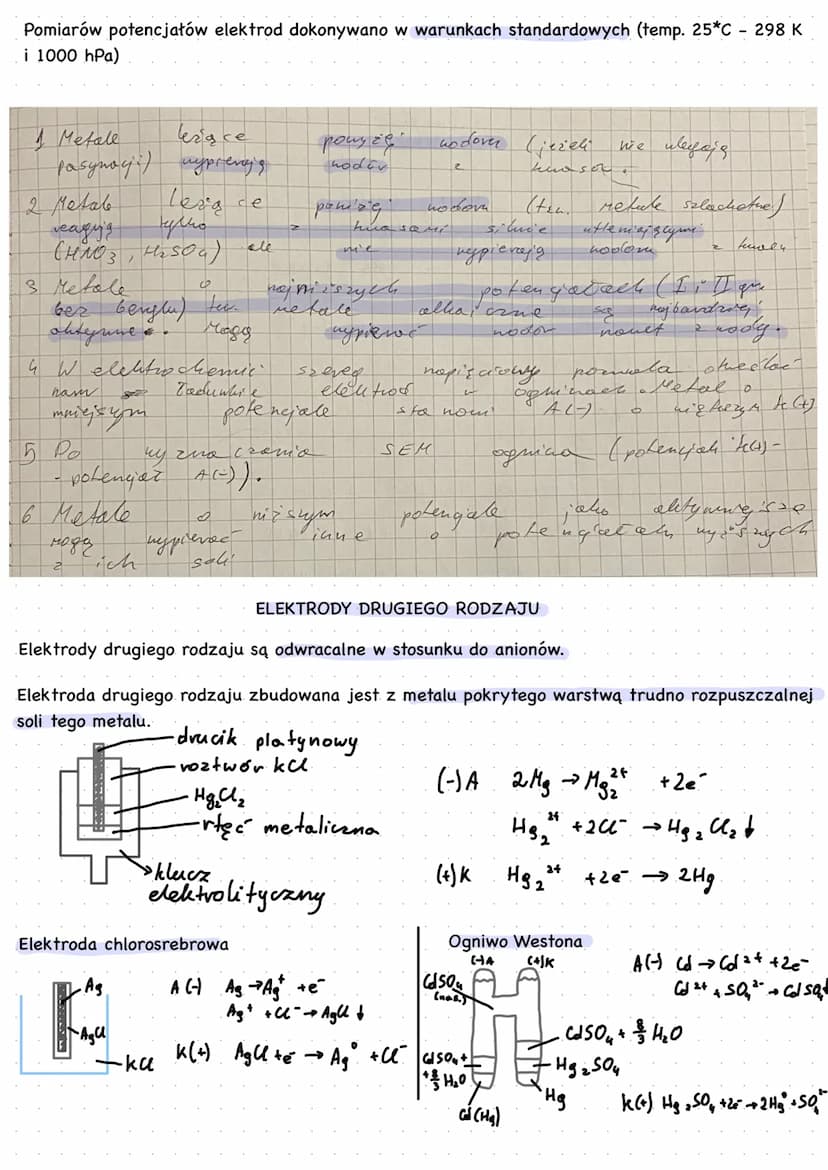 Pomiarów potencjałów elektrod dokonywano w warunkach standardowych (temp. 25*C - 298 K
i 1000 hPa)
1 Metale leżące powyżej wodoru (jeżeli nie ulegają
pasywacji) wypierają wodór z kwasów.
2 Metale leżące poniżej wodoru (tzw. metale szlachetne)
reagują tylko z kwasami silnie utleniającymi
(HNO3, H2SO4) ale nie wypierają wodoru z kwasu
3 Metale o najniższych potencjałach (I i II gr.
bez berylu) tzw. metale alkaiczne są najbardziej
aktywne. Mogą wypierać wodór nawet z wody.
4 W elektrochemii szereg napięciowy pozwala określać
nam ładunki elektrod w ogniwach. Metal o
mniejszym potencjale stanowi A(-) o większym K(+)
5 Do wyznaczania SEM ogniwa (potencjał K(+) -
- potencjał A(-)).
6 Metale o niższym potencjale jako aktywniejsze
mogą wypierać inne o potencjałach wyższych
z ich soli
ELEKTRODY DRUGIEGO RODZAJU
Elektrody drugiego rodzaju są odwracalne w stosunku do anionów.
Elektroda drugiego rodzaju zbudowana jest z metalu pokrytego warstwą trudno rozpuszczalnej
soli tego metalu.
drucik platynowy
roztwór KCl
Hg2Cl2
rtęć metaliczna
klucz
elektrolityczny
(-)A 2Hg → Hg2 2+ + 2e-
Hg2 2+ + 2Cl- → Hg2Cl2↓
(+)K Hg2 2+ + 2e- → 2Hg
Elektroda chlorosrebrowa
Ag
AgCl
KCl
A (-) Ag → Ag+ + e-
Ag+ + Cl- → AgCl ↓
K(+) AgCl + e- → Ag° + Cl-
Ogniwo Westona
(-)A (+)K
CdSO4
(nas.)
CdSO4 +
+ 8/3 H2O
Cd(Hg)
CdSO4 + 8/3 H2O
Hg2SO4
Hg
A(-) Cd → Cd2+ + 2e-
Cd2+ + SO4 2- → CdSO4↓
K(+) Hg2SO4 + 2e- → 2Hg° + SO4 2-